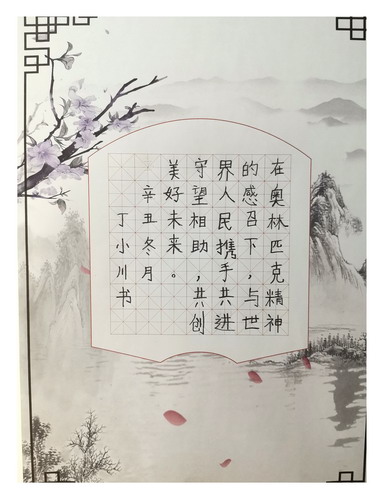 在奥林匹克精神
的感召下，与世
界人民携手共进
守望相助，共创
美好未来。
辛丑冬月
丁小川书